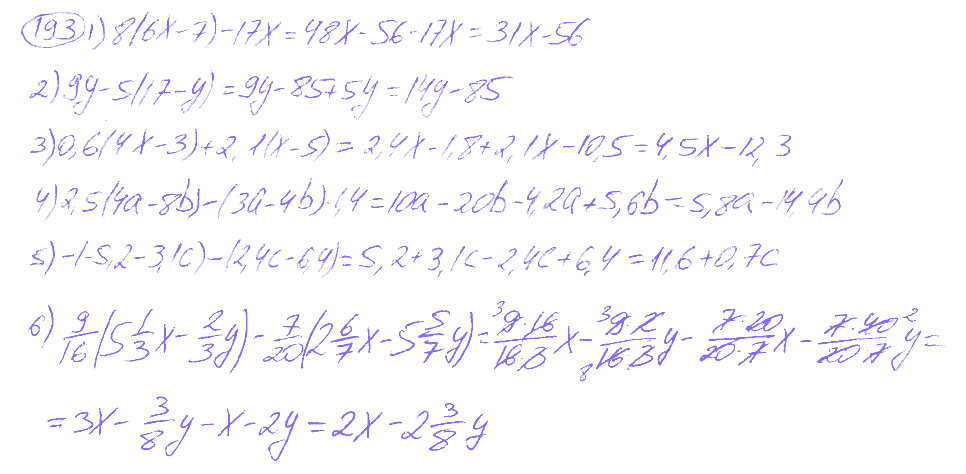 193 1) 8(6x-7)-17x=48x-56-17x=31x-56
2) 9y-5(17-y)=9y-85+5y=14y-85
3) 0,6(4x-3)+2,1(x-5)=2,4x-1,8+2,1x-10,5=4,5x-12,3
4) 2,5(4a-8b)-(3a-4b)·1,4=10a-20b-4,2a+5,6b=5,8a-14,4b
5) -(-5,2-3,1c)-(2,4c-6,4)=5,2+3,1c-2,4c+6,4=11,6+0,7c
6) 9/16(5 1/3x-2/3y)-7/20(2 6/7x-5 5/7y)=³9·16/16·3x-³9·2/₈16·3y-7·20/20·7x-7·40²/20·7y=
=3x-3/8y-x-2y=2x-2 3/8y